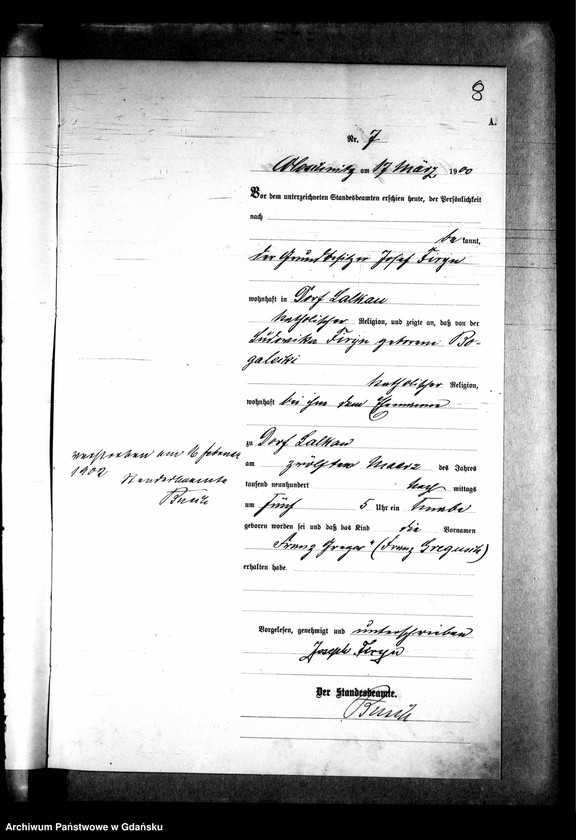 8
A.
Nr. 7
am 17 März 1900
Vor dem unterzeichneten Standesbeamten erschien heute, der Persönlichkeit
nach
bekannt,
der Grundbesitzer Josef
wohnhaft in Dorf Lalkau
katholischer Religion, und zeigte an, daß von der
geborene
katholischer Religion,
wohnhaft bei ihm dem Ehemanne
zu Dorf Lalkau
am zwölften Maerz des Jahres
tausend neunhundert Nachmittags
um fünf 5 Uhr ein Knabe
geboren worden sei und daß das Kind die Vornamen
Franz Gregor" (Franz
erhalten habe.
verstorben am 16 Februar
1902
Standesbeamte
Vorgelesen, genehmigt und unterschrieben
Joseph
Der Standesbeamte.
Archiwum Państwowe w Gdańsku